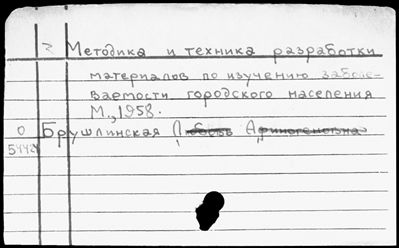 2 Методика и техника разработки
материалов по изучению заболе-
ваемости городского населения
М., 1958.
О Брушлинская Л
5442